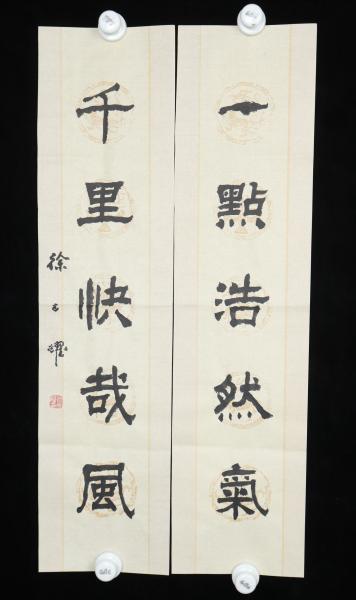 一點浩然氣
千里快哉風
徐
耀